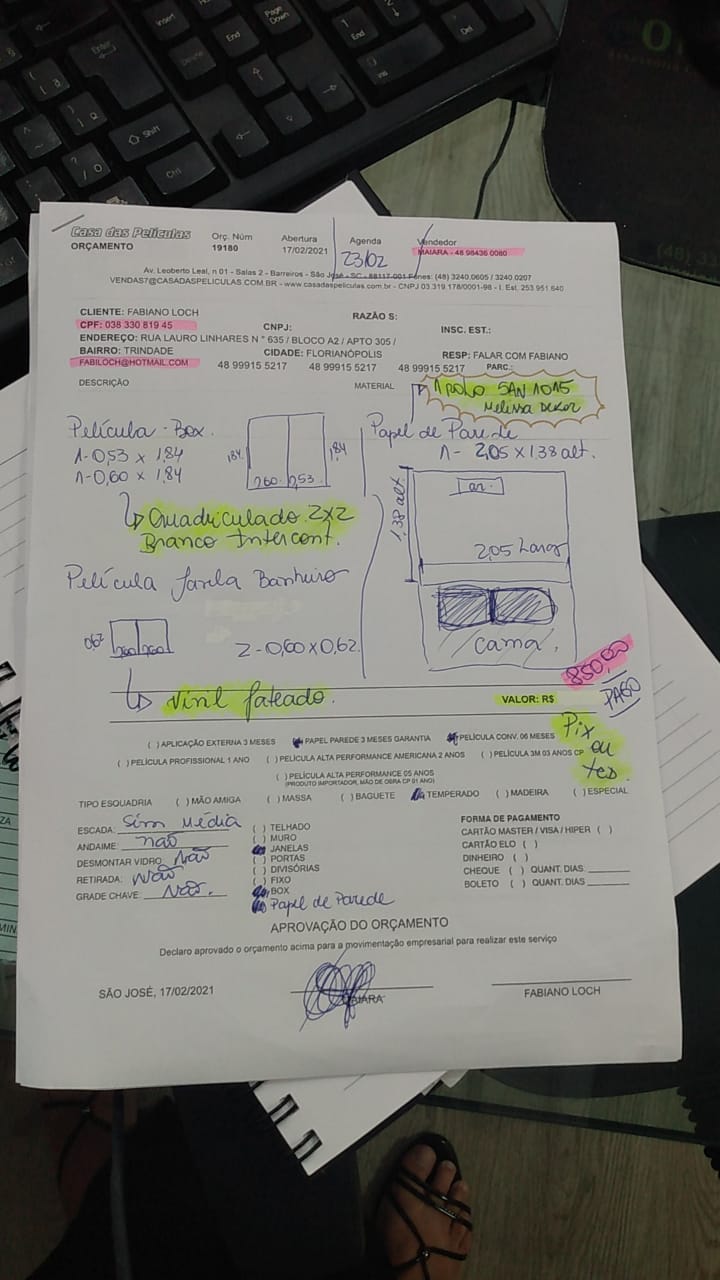 Casa das Películas
ORÇAMENTO
Orç. Núm
19180
Abertura
17/02/2021
Agenda
23/02
Vendedor
MAIARA - 48 98436 0080
Av. Leoberto Leal, n 01 - Salas 2 - Barreiros - São José - SC - 88117-001 Fones: (48) 3240.0605 / 3240.0207
VENDAS7@CASADASPELICULAS.COM.BR - www.casadaspeliculas.com.br - CNPJ 03.319.178/0001-98 - I. Est. 253.951.640
CLIENTE: FABIANO LOCH
RAZÃO S:
CPF: 038 330 819 45
CNPJ:
INSC. EST.:
ENDEREÇO: RUA LAURO LINHARES N ° 635 / BLOCO A2 / APTO 305 /
BAIRRO: TRINDADE
CIDADE: FLORIANÓPOLIS
RESP: FALAR COM FABIANO
FABILOCH@HOTMAIL.COM
48 99915 5217
48 99915 5217
48 99915 5217
PARC.:
DESCRIÇÃO
MATERIAL
Apolo SAN 1015
Melissa Dekor
Película - Box.
1-0,53 x 1,84
1-0,60 x 1,84
1,84
1,84
0,60
0,53
Papel de Parede
1- 2,05 x 1,38 alt.
Quadriculado 2x2
Branco Intercont.
ar.
1,38 alt
2,05 Larg
cama.
Película Janela Banheiro
0,62
0,60
0,60
2-0,60x0,62
Vinil Jateado.
VALOR: R$
850,00
PAGO
Pix
ou
ted.
( ) APLICAÇÃO EXTERNA 3 MESES
PAPEL PAREDE 3 MESES GARANTIA
PELÍCULA CONV. 06 MESES
( ) PELÍCULA PROFISSIONAL 1 ANO
( ) PELÍCULA ALTA PERFORMANCE AMERICANA 2 ANOS
( ) PELÍCULA 3M 03 ANOS CP
( ) PELÍCULA ALTA PERFORMANCE 05 ANOS
(PRODUTO IMPORTADOR, MÃO DE OBRA CP 01 ANO)
TIPO ESQUADRIA
( ) MÃO AMIGA
( ) MASSA
( ) BAGUETE
TEMPERADO
( ) MADEIRA
( ) ESPECIAL
ESCADA: Sim Média
ANDAIME: não
DESMONTAR VIDRO: Não
RETIRADA: Não
GRADE CHAVE: Não.
( ) TELHADO
( ) MURO
JANELAS
( ) PORTAS
( ) DIVISÓRIAS
( ) FIXO
BOX
Papel de Parede
FORMA DE PAGAMENTO
CARTÃO MASTER / VISA / HIPER ( )
CARTÃO ELO ( )
DINHEIRO ( )
CHEQUE ( ) QUANT. DIAS:
BOLETO ( ) QUANT. DIAS
APROVAÇÃO DO ORÇAMENTO
Declaro aprovado o orçamento acima para a movimentação empresarial para realizar este serviço
SÃO JOSÉ, 17/02/2021
MAIARA
FABIANO LOCH
Enter
Shift
Ctrl
Insert
End
Page Down
End
Ins
Del